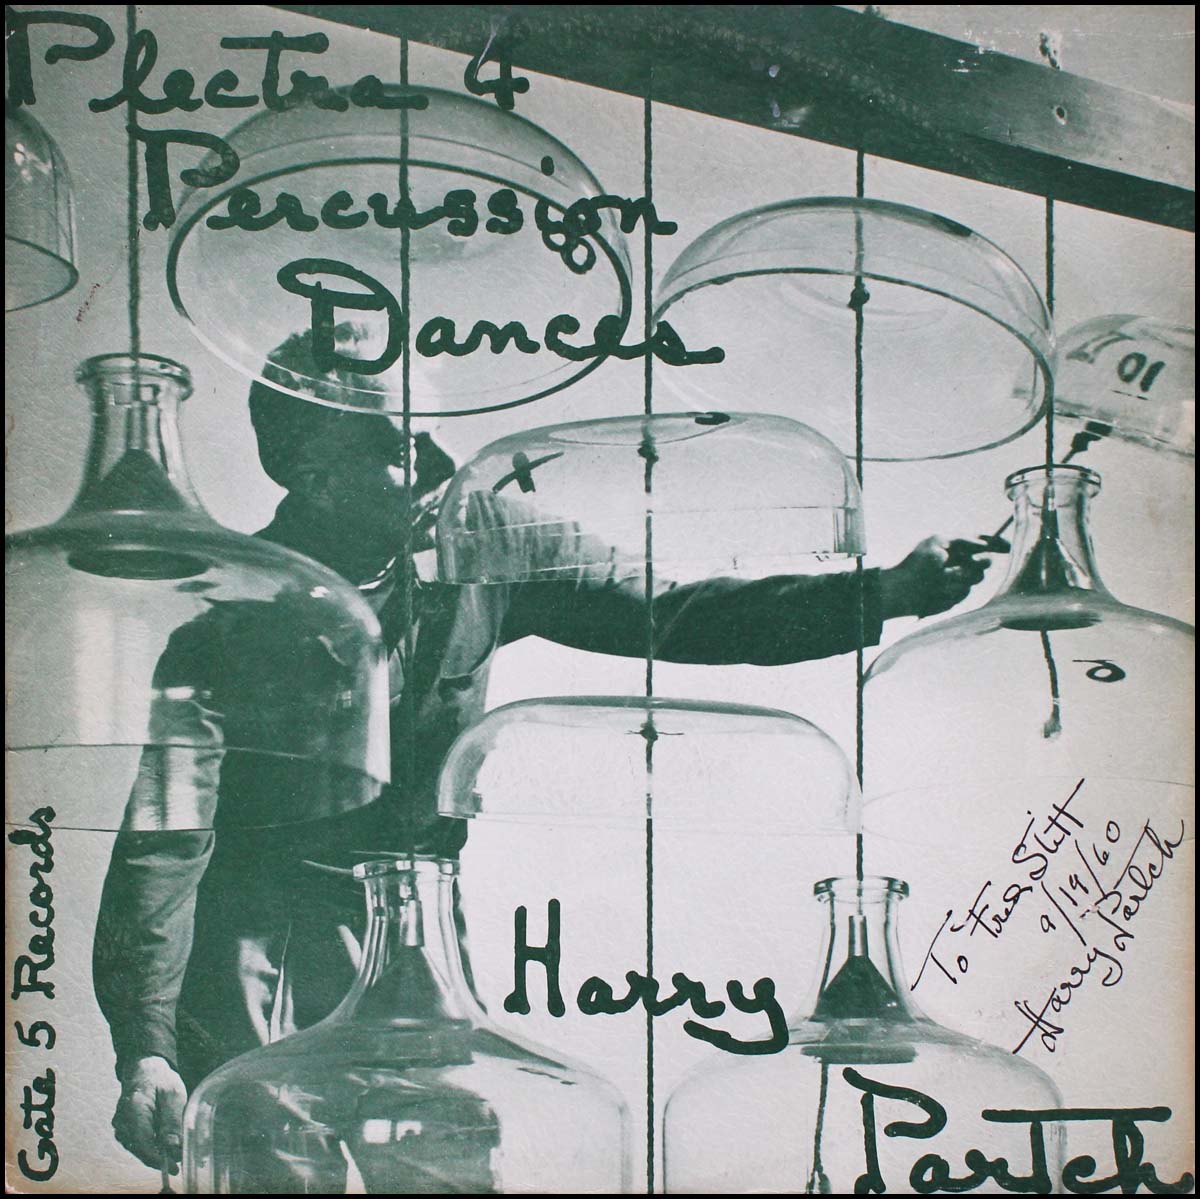 Plectra &
Percussion
Dances
Gate 5 Records
Harry
Partch
To Fred Stitt
9/19/60
Harry Partch